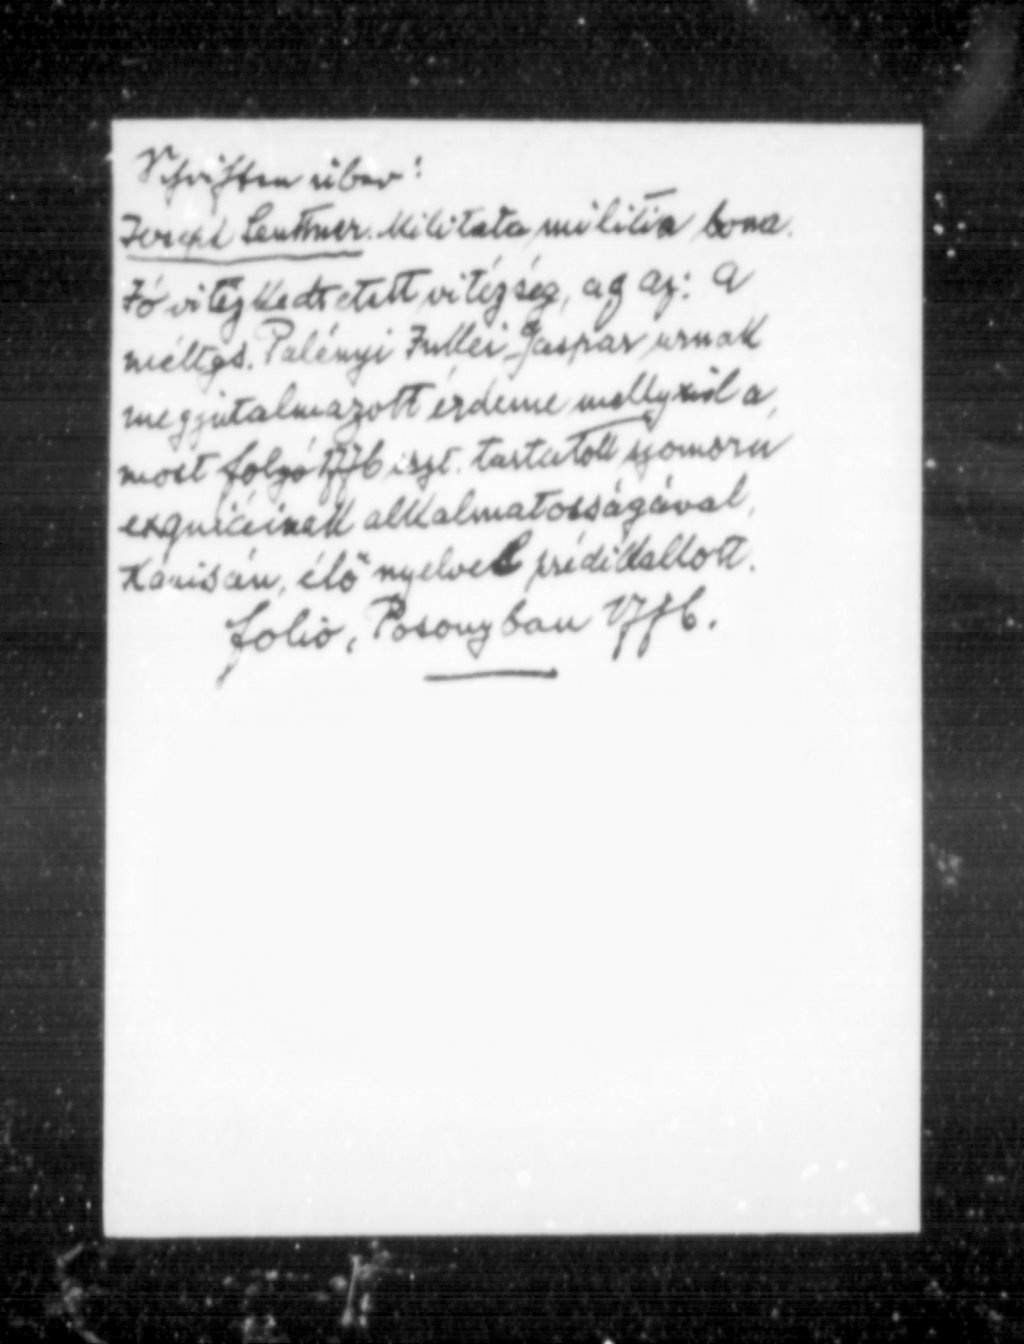 Schriften über:
Joseph Lenttner. Militata militia bona.
Jó vitézkedtetett vitézség, az az: a
méltgs. Palényi Inkei Gáspár urnak
megjutalmazott érdeme mellyről a,
most folgó 1776 eszt. tartatott szomorú
exquiciinek alkalmatosságával,
Kanisán, élő nyelvel prédikállott.
folio, Posonyban 1776.